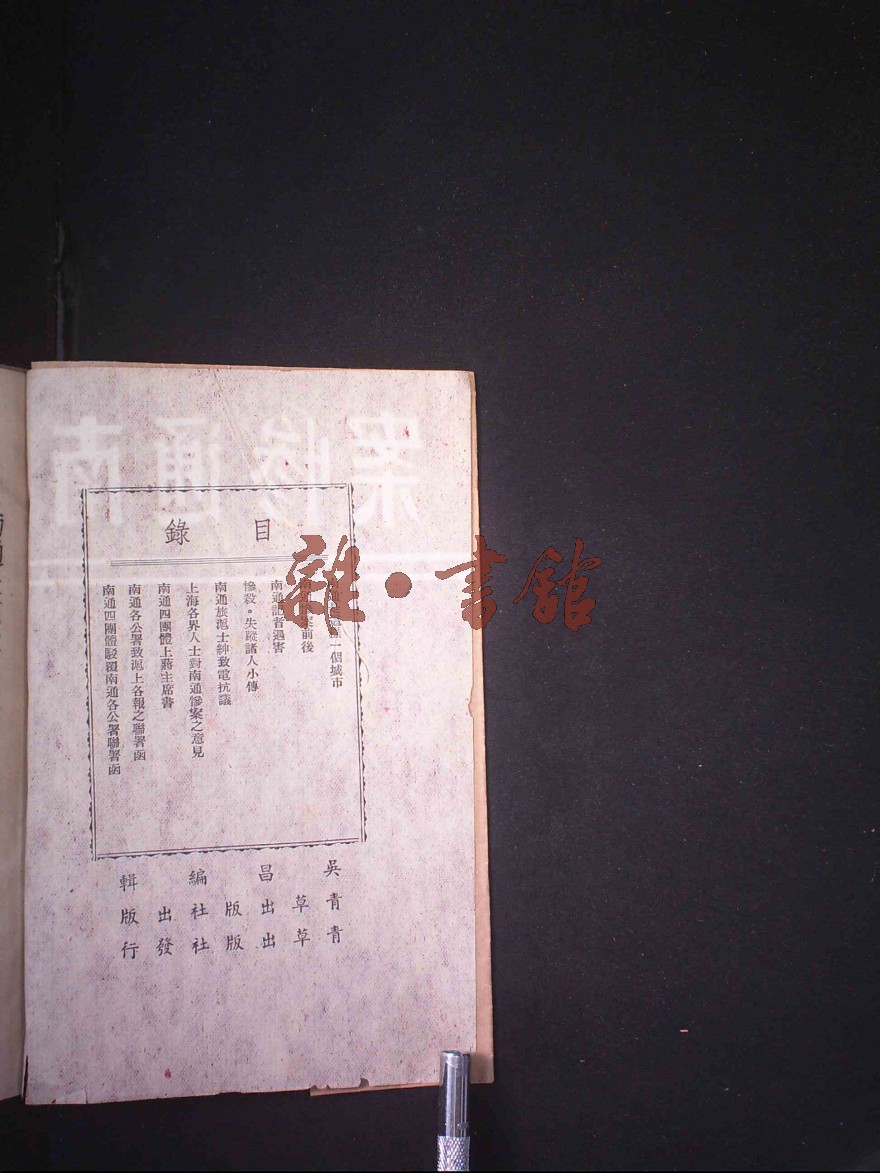 南通慘案
目錄
一個城市
案前後
南通記者遇害
慘殺。失蹤諸人小傳
南通旅滬士紳致電抗議
上海各界人士對南通慘案之意見
南通四團體上蔣主席書
南通各公署致滬上各報之聯署函
南通四團體駁覆南通各公署聯署函
吳昌編輯
青草出版社出版
青草出版社發行
雜·書館